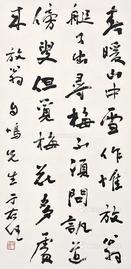 春暖山中雪作堆放翁
艇子出尋梅不須問訊道
傍叟但覓梅花多處
来 放翁 句鳴先生 于右任